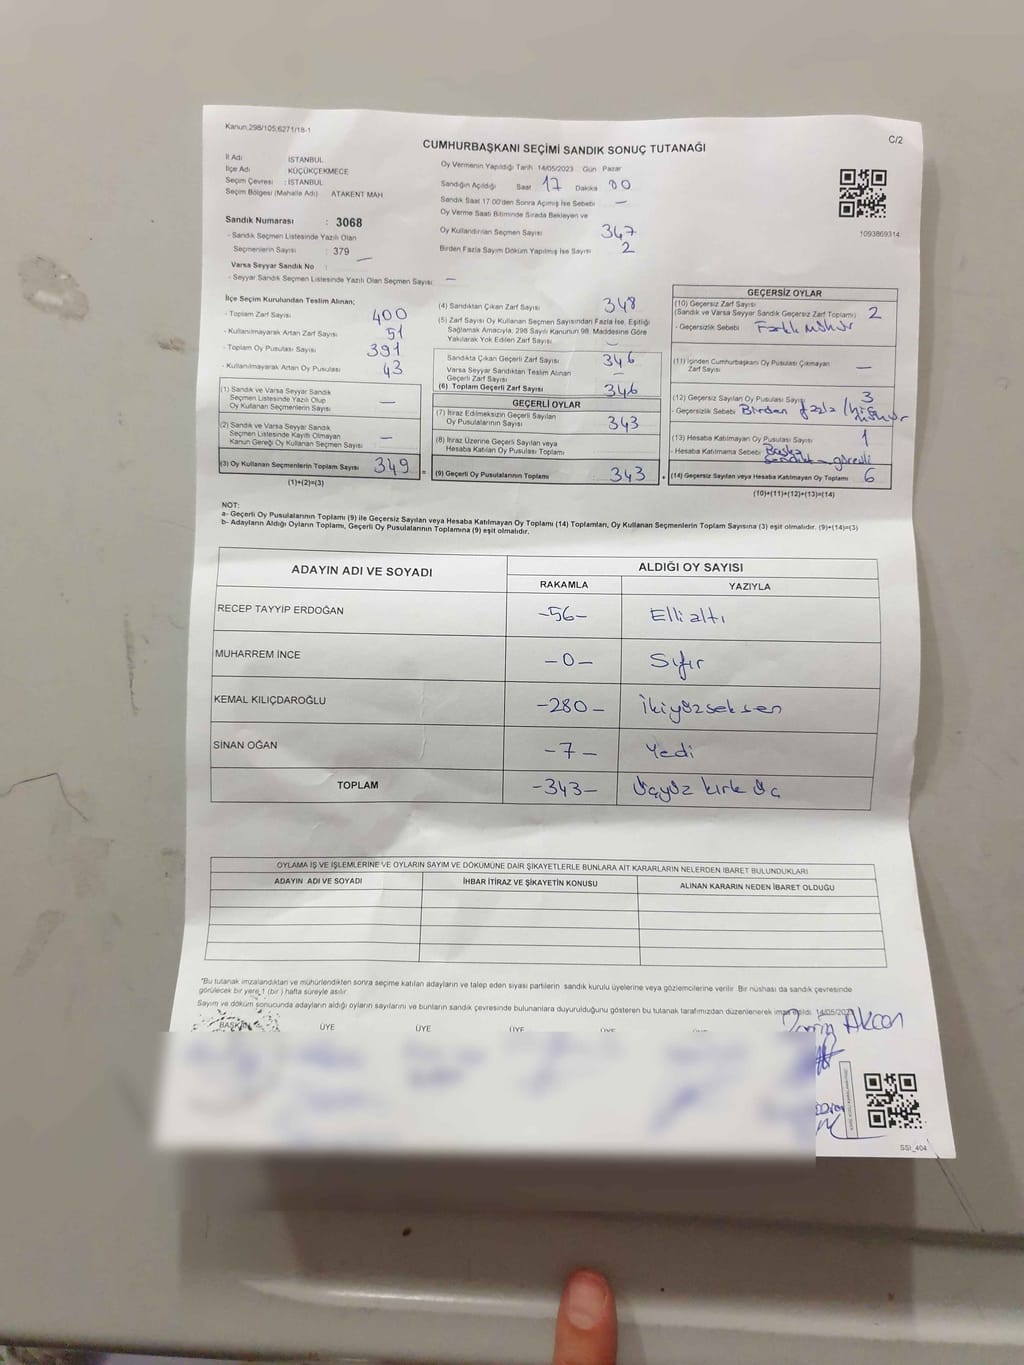 Kanun,298/105;6271/18-1
C/2
CUMHURBAŞKANI SEÇİMİ SANDIK SONUÇ TUTANAĞI
İl Adı : İSTANBUL
İlçe Adı : KÜÇÜKÇEKMECE
Seçim Çevresi : İSTANBUL
Seçim Bölgesi (Mahalle Adı) : ATAKENT MAH
Sandık Numarası : 3068
- Sandık Seçmen Listesinde Yazılı Olan
Seçmenlerin Sayısı : 379
Varsa Seyyar Sandık No : —
- Seyyar Sandık Seçmen Listesinde Yazılı Olan Seçmen Sayısı : —
Oy Vermenin Yapıldığı Tarih 14/05/2023 Gün Pazar
Sandığın Açıldığı Saat 17 Dakika 00
Sandık Saat 17.00'den Sonra Açılmış İse Sebebi —
Oy Verme Saati Bitiminde Sırada Bekleyen ve
Oy Kullandırılan Seçmen Sayısı 347
Birden Fazla Sayım Döküm Yapılmış İse Sayısı 2
1093869314
İlçe Seçim Kurulundan Teslim Alınan;
- Toplam Zarf Sayısı 400
- Kullanılmayarak Artan Zarf Sayısı 51
- Toplam Oy Pusulası Sayısı 391
- Kullanılmayarak Artan Oy Pusulası 43
(1) Sandık ve Varsa Seyyar Sandık
Seçmen Listesinde Yazılı Olup
Oy Kullanan Seçmenlerin Sayısı —
(2) Sandık ve Varsa Seyyar Sandık
Seçmen Listesinde Kayıtlı Olmayan
Kanun Gereği Oy Kullanan Seçmen Sayısı —
(3) Oy Kullanan Seçmenlerin Toplam Sayısı 349 =
(1)+(2)=(3)
(4) Sandıktan Çıkan Zarf Sayısı 348
(5) Zarf Sayısı Oy Kullanan Seçmen Sayısından Fazla İse, Eşitliği
Sağlamak Amacıyla; 298 Sayılı Kanunun 98. Maddesine Göre
Yakılarak Yok Edilen Zarf Sayısı —
Sandıkta Çıkan Geçerli Zarf Sayısı 346
Varsa Seyyar Sandıktan Teslim Alınan
Geçerli Zarf Sayısı —
(6) Toplam Geçerli Zarf Sayısı 346
GEÇERLİ OYLAR
(7) İtiraz Edilmeksizin Geçerli Sayılan
Oy Pusulalarının Sayısı 343
(8) İtiraz Üzerine Geçerli Sayılan veya
Hesaba Katılan Oy Pusulası Toplamı
(9) Geçerli Oy Pusulalarının Toplamı 343 +
GEÇERSİZ OYLAR
(10) Geçersiz Zarf Sayısı
(Sandık ve Varsa Seyyar Sandık Geçersiz Zarf Toplamı) 2
- Geçersizlik Sebebi Farklı mühür
(11) İçinden Cumhurbaşkanı Oy Pusulası Çıkmayan
Zarf Sayısı —
(12) Geçersiz Sayılan Oy Pusulası Sayısı 3
- Geçersizlik Sebebi Birden fazla / hiç mühür
(13) Hesaba Katılmayan Oy Pusulası Sayısı 1
- Hesaba Katılmama Sebebi Başka
sandıkta görevli
(14) Geçersiz Sayılan veya Hesaba Katılmayan Oy Toplamı 6
(10)+(11)+(12)+(13)=(14)
NOT:
a- Geçerli Oy Pusulalarının Toplamı (9) ile Geçersiz Sayılan veya Hesaba Katılmayan Oy Toplamı (14) Toplamları, Oy Kullanan Seçmenlerin Toplam Sayısına (3) eşit olmalıdır. (9)+(14)=(3)
b- Adayların Aldığı Oyların Toplamı, Geçerli Oy Pusulalarının Toplamına (9) eşit olmalıdır.
ADAYIN ADI VE SOYADI
ALDIĞI OY SAYISI
RAKAMLA YAZIYLA
RECEP TAYYİP ERDOĞAN -56- Elli altı
MUHARREM İNCE -0- Sıfır
KEMAL KILIÇDAROĞLU -280- İkiyüzseksen
SİNAN OĞAN -7- Yedi
TOPLAM -343- Üçyüz kırk üç
OYLAMA İŞ VE İŞLEMLERİNE VE OYLARIN SAYIM VE DÖKÜMÜNE DAİR ŞİKAYETLERLE BUNLARA AİT KARARLARIN NELERDEN İBARET BULUNDUKLARI
ADAYIN ADI VE SOYADI İHBAR İTİRAZ VE ŞİKAYETİN KONUSU ALINAN KARARIN NEDEN İBARET OLDUĞU
*Bu tutanak imzalandıktan ve mühürlendikten sonra seçime katılan adayların ve talep eden siyasi partilerin sandık kurulu üyelerine veya gözlemcilerine verilir. Bir nüshası da sandık çevresinde
görülecek bir yere 1 (bir) hafta süreyle asılır.
Sayım ve döküm sonucunda adayların aldığı oyların sayılarını ve bunların sandık çevresinde bulunanlara duyurulduğunu gösteren bu tutanak tarafımızdan düzenlenerek imza edildi. 14/05/2023
BAŞKAN ÜYE ÜYE ÜYE ÜYE ÜYE
Akcan
SSI_404